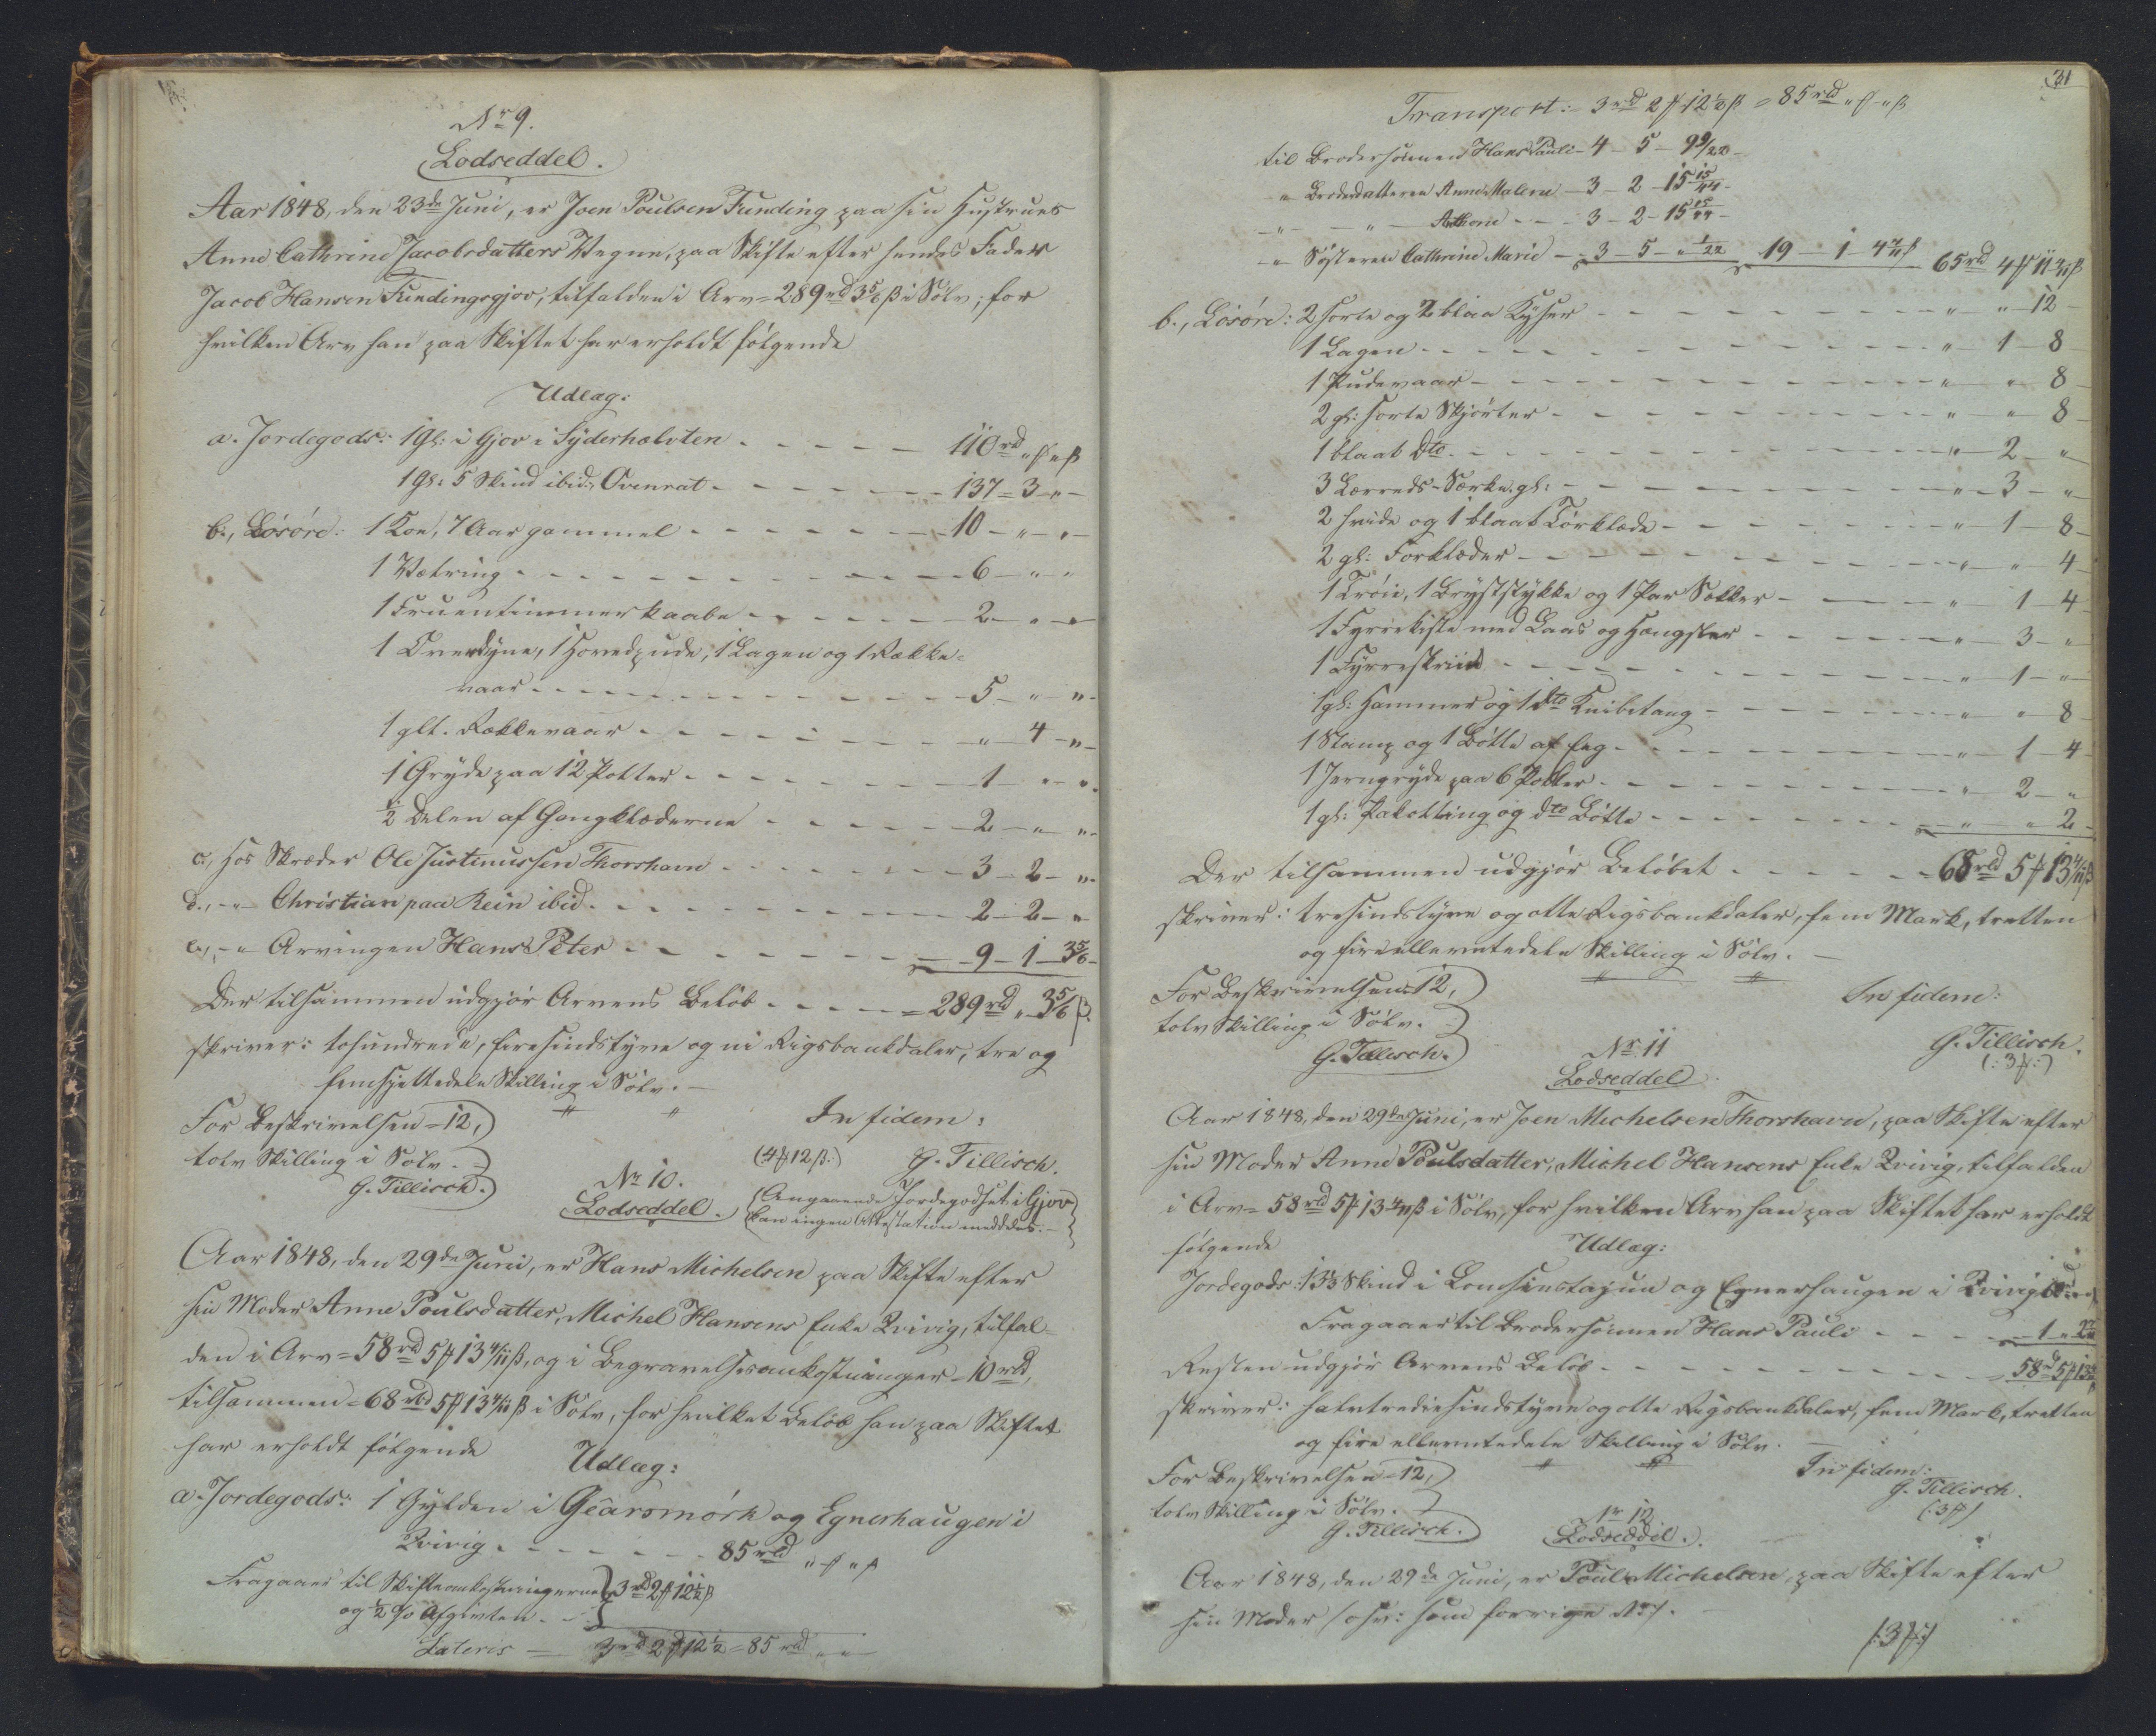 Nr 9.
Lodseddel.
Aar 1848, den 23de Juni, er Joen Poulsen Funding paa sin Hustrues
Anne Cathrine Jacobsdatters Vegne, paa Skifte efter hendes Fader
Jacob Hansen Fundingsgjov, tilfalden i Arv = 289 rd 3 5/6 ß i Sölv; for
hvilken Arv han paa Skiftet har erholdt fölgende
Udlæg:
a. Jordegods: 1 Gl: i Gjov i Syderhalvten - - - - - 110 rd „ ƒ „ ß
1 Gl: 5 Skind ibid., Ovenrat - - - - - - 137 - 3 - „ -
b., Lösöre: 1 Koe, 7 Aar gammel - - - - - - 10 - „ - „ -
1 Vætring - - - - - - - - - - 6 - „ - „
1 Fruentimmerkaabe - - - - - - 2 - „ - „
1 Overdyne, 1 Hovedpude, 1 Lagen og 1 Række=
vaar - - - - - - - - - - - - 5 - „ - „ -
1 glt. Rækkevaar - - - - - - - - „ - 4 - „ -
1 Gryde paa 12 Potter - - - - - - - 1 - „ - „
1/2 Delen af Gangklæderne - - - - - 2 - „ - „ -
c., hos Skræder Ole Justinussen Thorshavn - - - - - - 3 - 2 - „ -
d., - „ - Christian paa Rein ibid. - - - - - - - - 2 - 2 - „ -
e., - „ Arvingen Hans Peter - - - - - - - - 9 - 1 - 3 5/6 -
Der tilsammen udgjör Arvens Belöb - - - - = 289 rd „ 3 5/6 ß.
skriver: tohundrede, firesindstyve og ni Rigsbankdaler, tre og
femsjettedele Skilling i Sölv. -
For Beskrivelsen = 12,
tolv Skilling i Sölv.
G. Tillisch.
In fidem:
(4 ƒ 12 ß:) G. Tillisch.
(Angaaende Jordegodset i Gjov
kan ingen Attestation meddeles. -
Nr 10.
Lodseddel.
Aar 1848, den 29de Juni, er Hans Michelsen paa Skifte efter
sin Moder Anne Poulsdatter, Michel Hansens Enke Qvivig, tilfal=
den i Arv = 58 rd 5 ƒ 13 4/11 ß, og i Begravelsesomkostninger = 10 rd,
tilsammen = 68 rbd 5 ƒ 13 4/11 ß i Sölv, for hvilket Belöb han paa Skiftet
har erholdt fölgende Udlæg:
a. Jordegods: 1 Gylden i Gearsmörk og Egnerhaugen i
Qvivig - - - - - - - 85 rd „ ƒ „ ß
Fragaaer til Skifteomkostningerne } 3 rd 2 ƒ 12 1/2 ß
og 1/2 % Afgivten - - }
Lateris = 3 rd 2 ƒ 12 1/2 = 85 rd „ „
31
Transport: 3 rd 2 ƒ 12 1/2 ß = 85 rd „ ƒ „ ß
til Brodersönnen Hans Pauli - 4 - 5 - 9 9/22 -
- „ Broderdatteren Anne Malene - 3 - 2 - 15 15/44 -
- „ - „ - Athorie - - 3 - 2 - 15 15/44 -
- „ Systeren Cathrine Marie - 3 - 5 - „ 1/22 19 - 1 - 4 9/11 ß 65 rd 4 ƒ 11 2/11 ß
b., Lösöre: 2 sorte og 2 blaa Kyser - - - - - - - - „ „ - 12 -
1 Lagen - - - - - - - - - - - - „ - 1 - 8 -
1 Pudevaar - - - - - - - - - - - „ - „ 8 -
2 gl: sorte Skjörter - - - - - - - - - „ - „ - 8
1 blaat Dto - - - - - - - - - - - „ - 2 - „
3 Lærreds-Særke, gl: - - - - - - - - „ - 3 - „ -
2 hvide og 1 blaat Törklæde - - - - - - „ - 1 - 8 -
2 gl: Forklæder - - - - - - - - - - „ - „ - 4 -
1 Tröie, 1 Bryststykke og 1 Par Sokker - - - - „ 1 - 4 -
1 Fyrrekiste med Laas og Hængsler - - - - - „ - 3 - „
1 Fyrreskriin - - - - - - - - - - - „ - 1 - „ -
1 gl: Hammer og 1 dto Knibetang - - - - - - „ - „ 8 -
1 Stamp og 1 Bötte af Eeg - - - - - - - „ 1 - 4 -
1 Jerngryde paa 6 Potter - - - - - - - - „ - 2 - „
1 gl: og dto Bötte - - - - - - - „ - „ 2 -
Der tilsammen udgjör Belöbet - - - - - - = 68 rd 5 ƒ 13 4/11 ß
skriver: tresindstyve og otte Rigsbankdaler, fem Mark, tretten
og fire ellevtedele Skilling i Sölv. -
For Beskrivelsen = 12,
tolv Skilling i Sölv.
G. Tillisch.
In fidem:
G. Tillisch.
(: 3 ƒ :)
Nr 11
Lodseddel.
Aar 1848, den 29de Juni, er Joen Michelsen Thorshavn, paa Skifte efter
sin Moder Anne Poulsdatter, Michel Hansens Enke Qvivig, tilfalden
i Arv = 58 rd 5 ƒ 13 4/11 ß i Sölv, for hvilken Arv han paa Skiftet har erholdt
fölgende Udlæg:
Jordegods: 13 1/3 Skind i og Egnerhaugen i Qvivig
Fragaaer til Brodersönnen Hans Pauli - - - - - 1 „
Resten udgjör Arvens Belöb - - - - - - - - = 58 rd 5 ƒ 13 4/11 ß
skriver: halvtrediesindstyve og otte Rigsbankdaler, fem Mark, tretten
og fire ellevtedele Skilling i Sölv. -
For Beskrivelsen = 12,
tolv Skilling i Sölv.
G. Tillisch.
In fidem:
G. Tillisch.
(: 3 ƒ)
Nr 12
Lodseddel.
Aar 1848, den 29de Juni, er Poul Michelsen, paa Skifte efter
sin Moder / osv: som forrige Nr /.
(: 3 ƒ :)